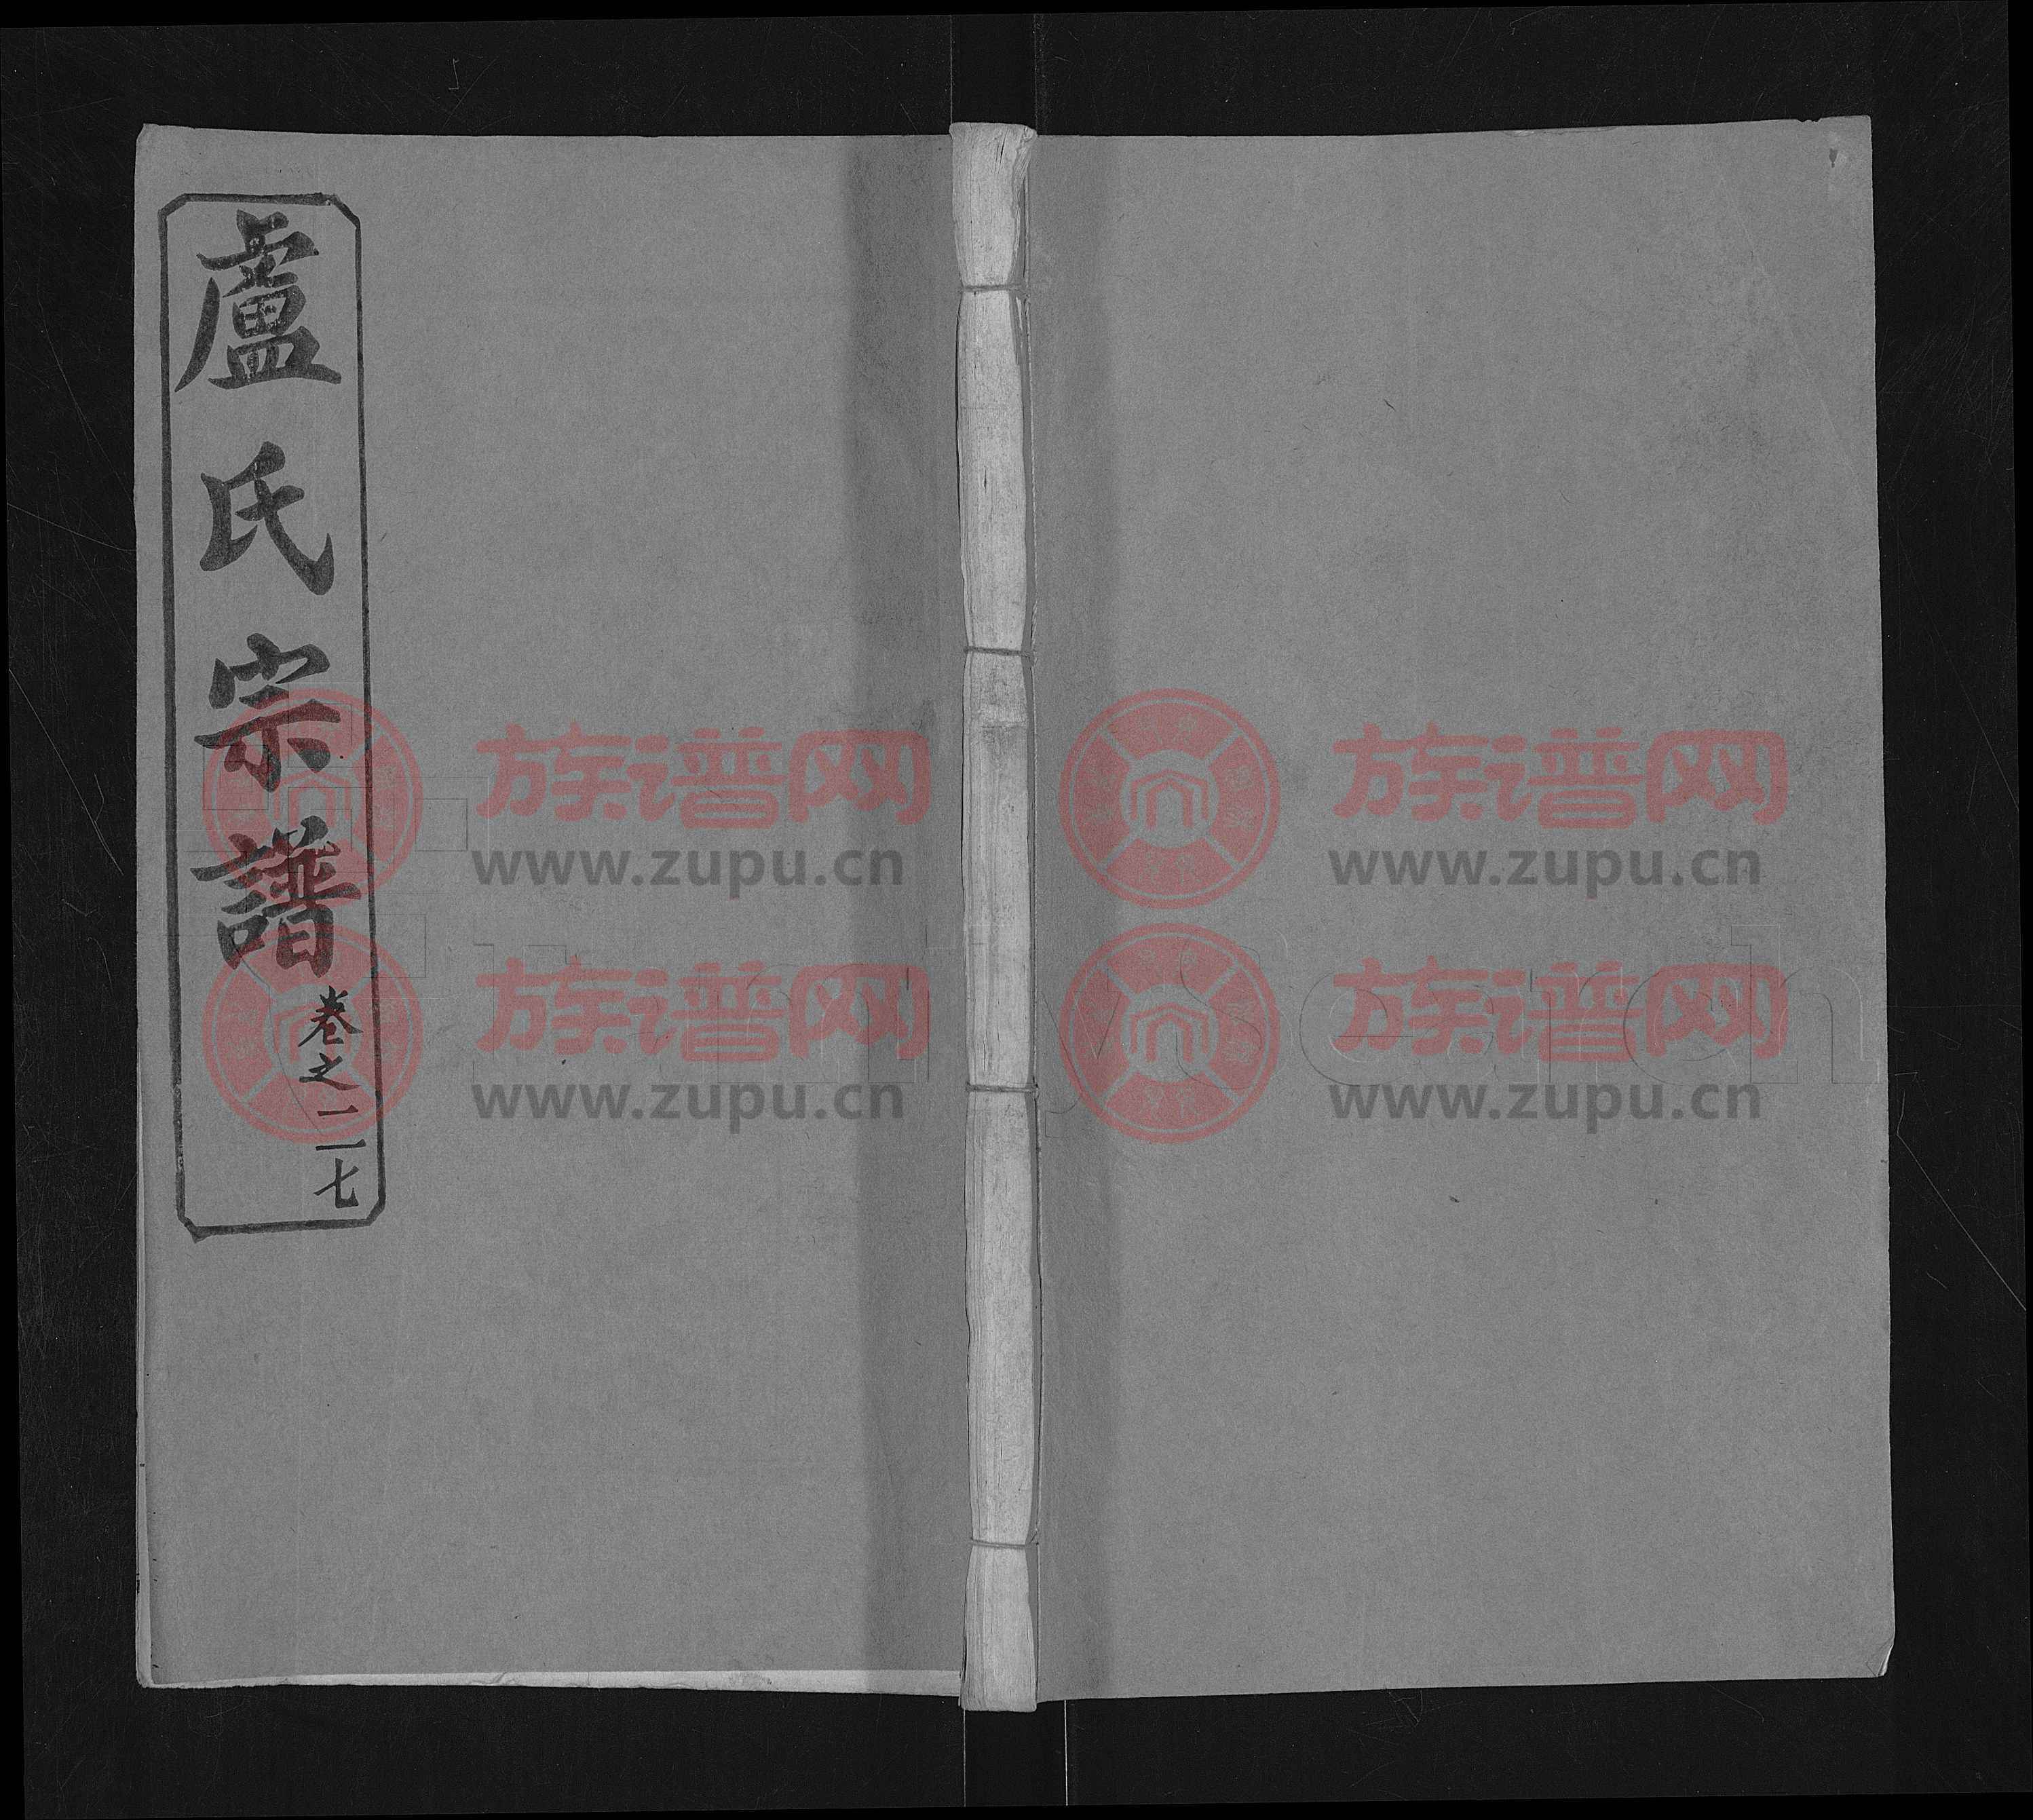 盧氏宗譜
卷之二七
族谱网
www.zupu.cn
族谱网
www.zupu.cn
族谱网
www.zupu.cn
族谱网
www.zupu.cn
FamilySearch